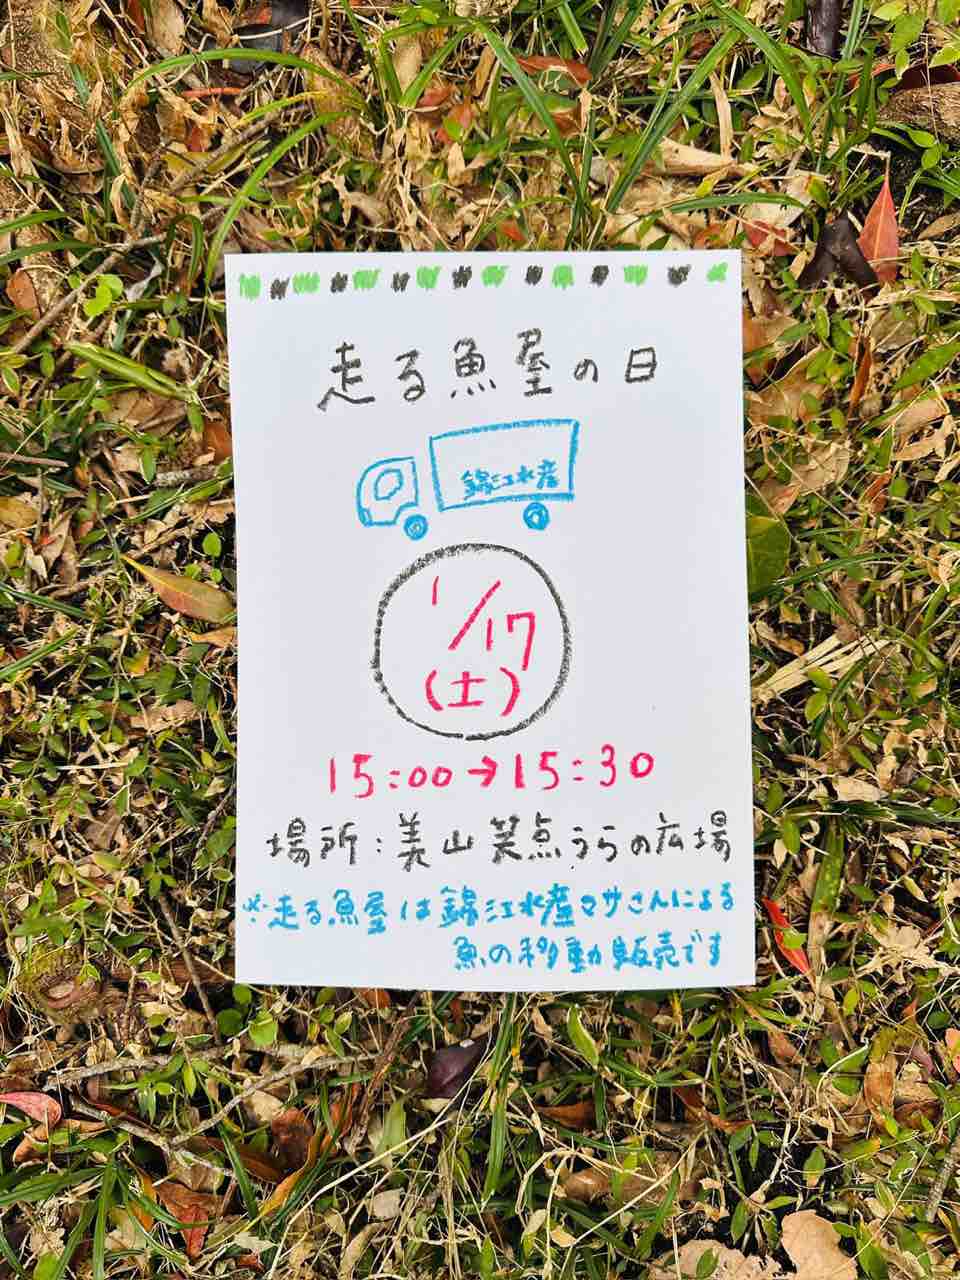 走る魚屋の日
錦江水産
1/17
(土)
15:00→15:30
場所:美山笑点うらの広場
※走る魚屋は錦江水産マサさんによる
魚の移動販売です